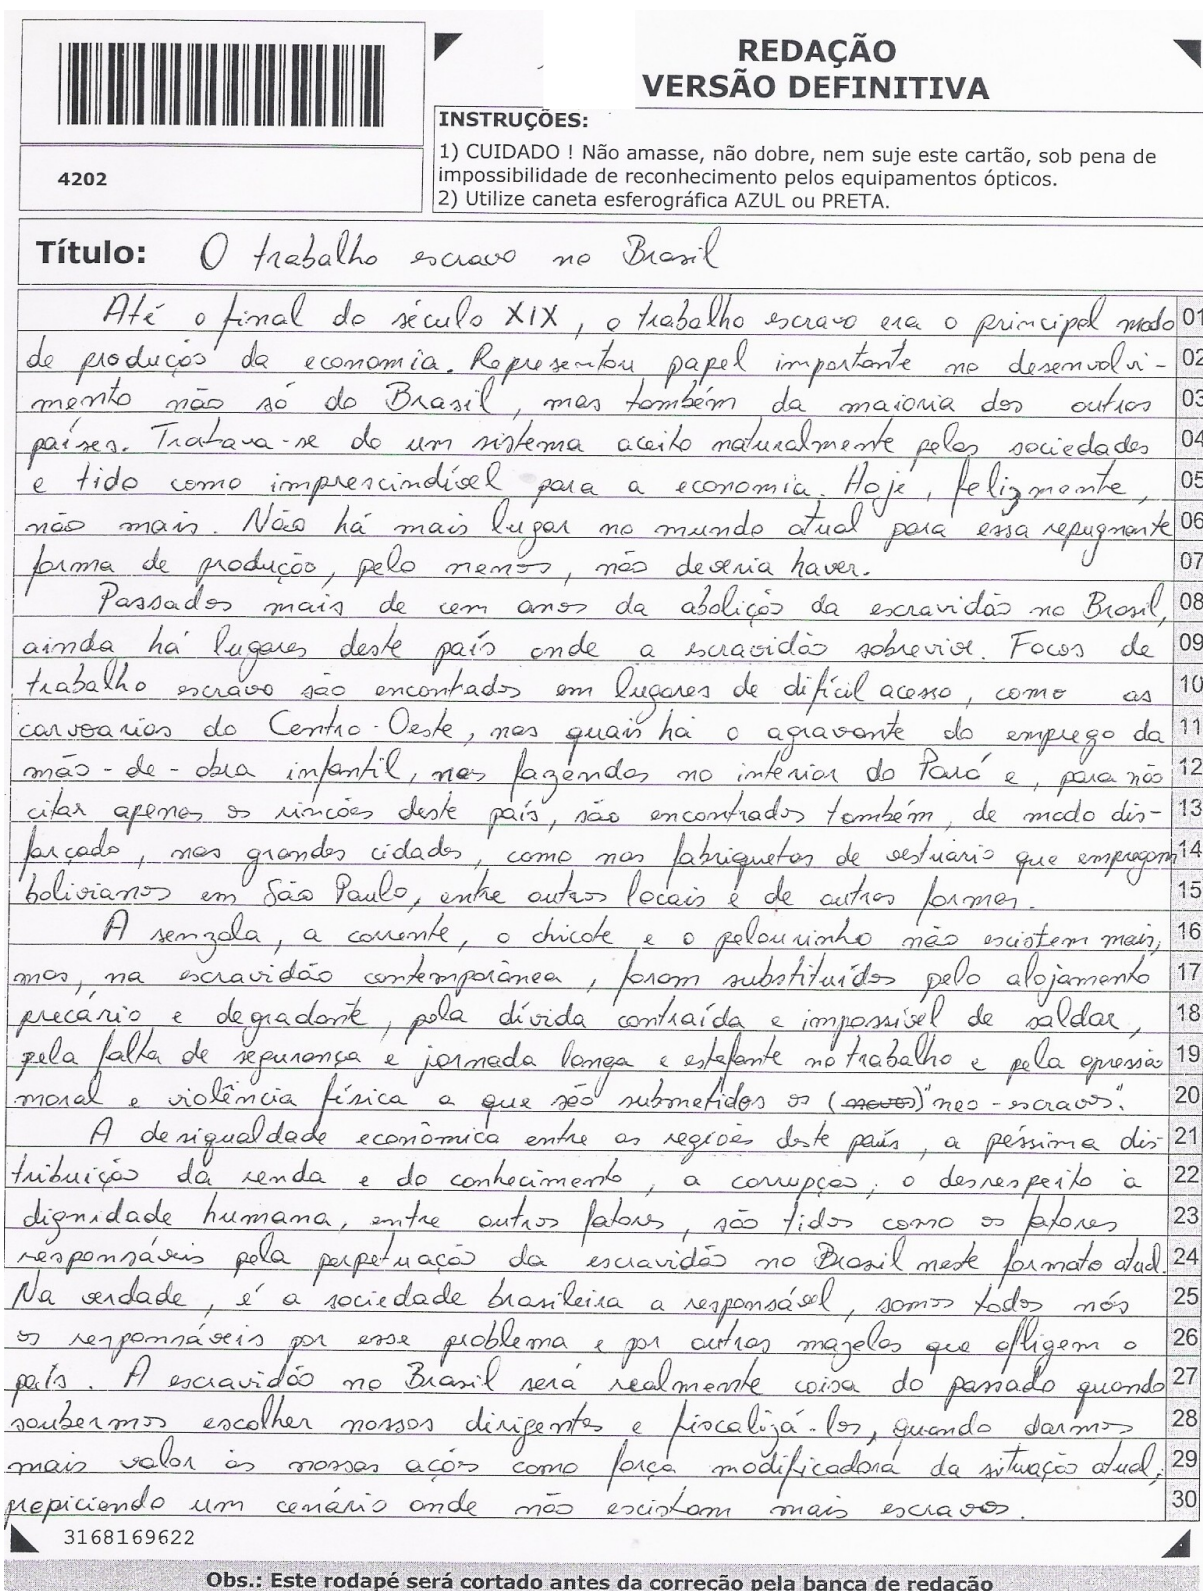 REDAÇÃO
VERSÃO DEFINITIVA
INSTRUÇÕES:
1) CUIDADO ! Não amasse, não dobre, nem suje este cartão, sob pena de
impossibilidade de reconhecimento pelos equipamentos ópticos.
2) Utilize caneta esferográfica AZUL ou PRETA.
4202
Título: O trabalho escravo no Brasil
Até o final do século XIX, o trabalho escravo era o principal modo 01
de produção da economia. Representou papel importante no desenvolvi- 02
mento não só do Brasil, mas também da maioria dos outros 03
países. Tratava-se de um sistema aceito naturalmente pelas sociedades 04
e tido como imprescindível para a economia. Hoje, felizmente, 05
não mais. Não há mais lugar no mundo atual para essa repugnante 06
forma de produção, pelo menos, não deveria haver. 07
Passados mais de cem anos da abolição da escravidão no Brasil, 08
ainda há lugares deste país onde a escravidão sobrevive. Focos de 09
trabalho escravo são encontados em lugares de difícil acesso, como as 10
carvoarias do Centro-Oeste, nas quais há o agravante do emprego da 11
mão-de-obra infantil, nas fazendas no interior do Pará e, para não 12
citar apenas os rincões deste país, são encontrados também, de modo dis- 13
farçado, nas grandes cidades, como nas fabriquetas de vestuário que empregam 14
bolivianos em São Paulo, entre outros locais e de outras formas. 15
A senzala, a corrente, o chicote e o pelourinho não existem mais, 16
mas, na escravidão contemporânea, foram substituídos pelo alojamento 17
precário e degradante, pela dívida contraída e impossível de saldar, 18
pela falta de segurança e jornada longa e estafante no trabalho e pela opressão 19
moral e violência física a que são submetidos os (novos) "neo-escravos". 20
A desigualdade econômica entre as regiões deste país, a péssima dis- 21
tribuição da renda e do conhecimento, a corrupção, o desrespeito à 22
dignidade humana, entre outros fatores, são tidos como os fatores 23
responsáveis pela perpetuação da escravidão no Brasil neste formato atual. 24
Na verdade, é a sociedade brasileira a responsável, somos todos nós 25
os responsáveis por esse problema e por outras mazelas que afligem o 26
país. A escravidão no Brasil será realmente coisa do passado quando 27
soubermos escolher nossos dirigentes e fiscalizá-los, quando darmos 28
mais valor às nossas ações como força modificadora da situação atual, 29
propiciando um cenário onde não existam mais escravos. 30
3168169622
Obs.: Este rodapé será cortado antes da correção pela banca de redação